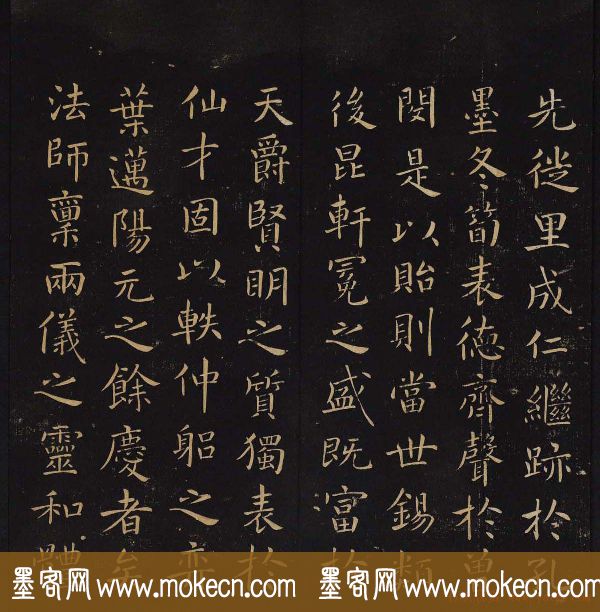 先徙里成仁繼跡於孔
墨冬筍表德齊聲於曾
閔是以貽則當世錫類
後昆軒冕之盛既富於
天爵賢明之質獨表於
仙才固以軼仲躬之奕
葉邁陽元之餘慶者矣
法師稟兩儀之靈和體
墨客网 www.mokecn.com 墨客网 www.mokecn.com